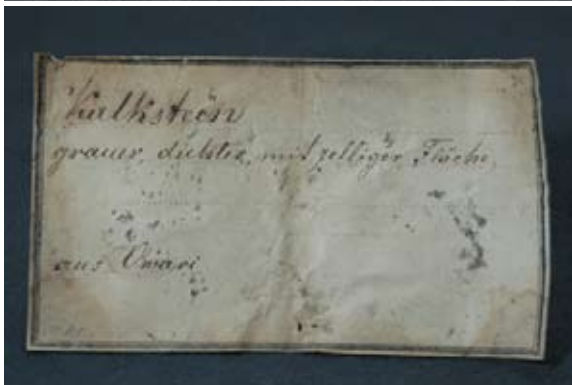 Kalkstein
grauer, dichter, mit zelliger Fläche
aus Owari